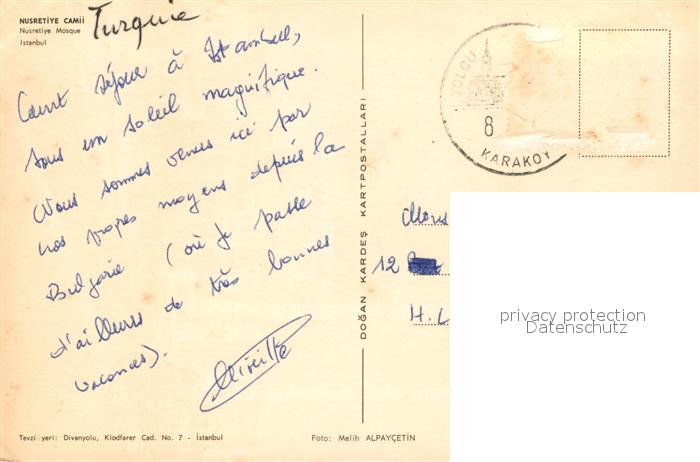 NUSRETİYE CAMİİ
Nusretiye Mosque
Istanbul
Turquie
Court séjour à Istambul,
sous un soleil magnifique.
Nous sommes venus ici par
nos propres moyens depuis la
Bulgarie (où je passe
d'ailleurs de très bonnes
vacances).
Mireille
Tevzi yeri: Divanyolu, Klodfarer Cad. No. 7 - İstanbul
Foto: Melih ALPAYÇETİN
DOĞAN KARDEŞ KARTPOSTALLARI
YOLCU
8
KARAKÖY
Mons
12
H.L
privacy protection
Datenschutz